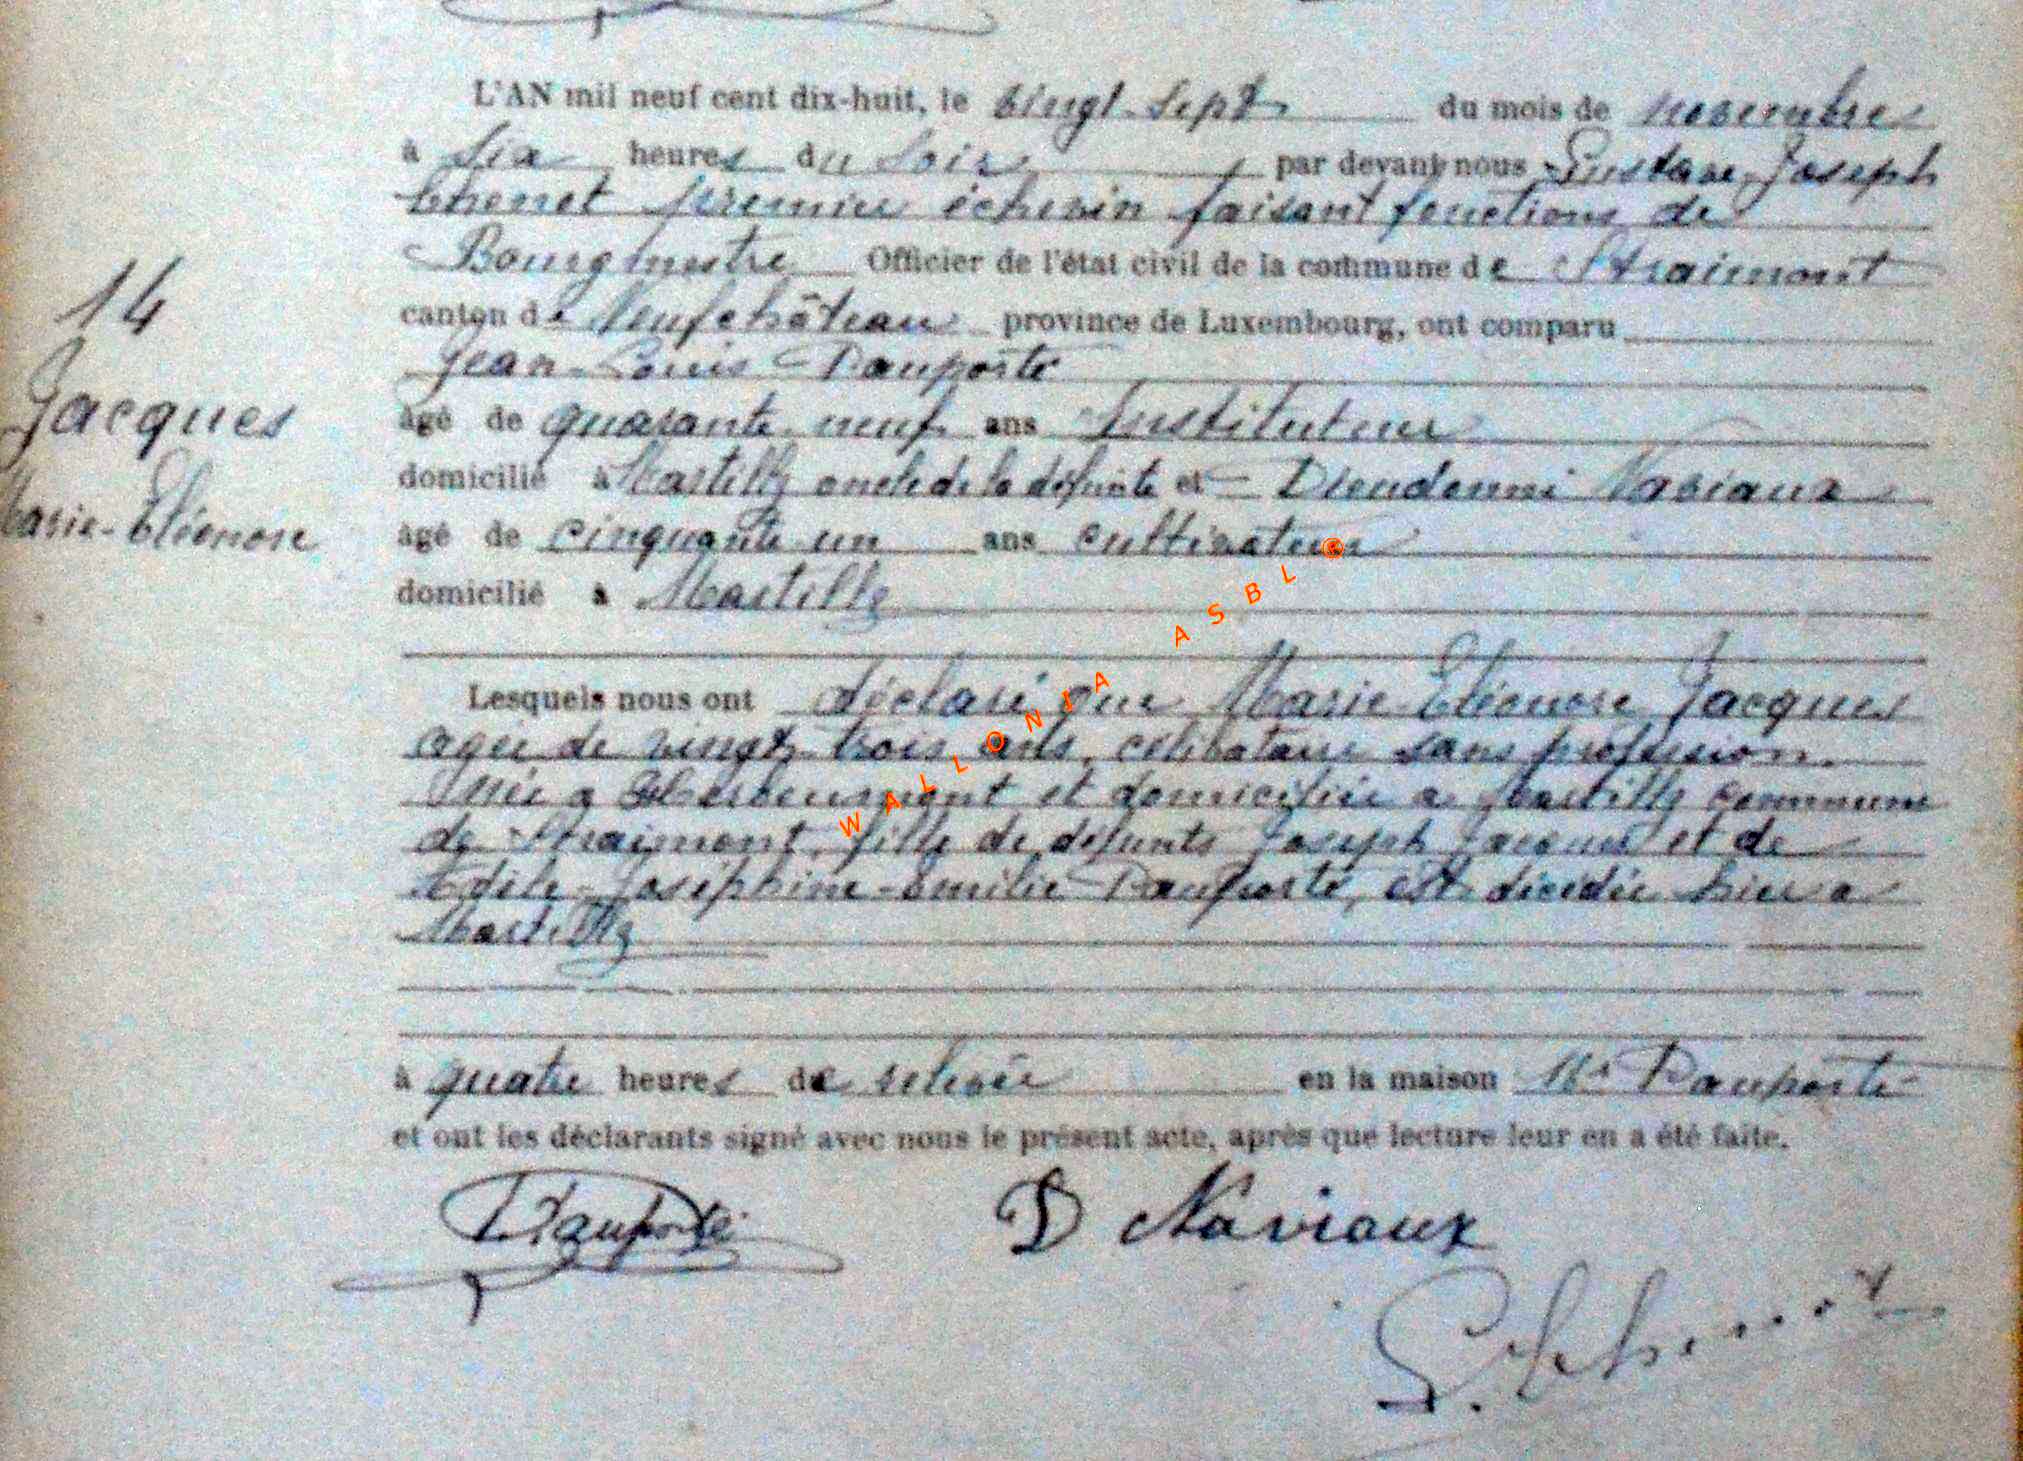 L'AN mil neuf cent dix-huit, le vingt-sept du mois de novembre
à six heures du soir par devant nous Gustave Joseph
Chenot premier échevin faisant fonctions de
Bourgmestre Officier de l'état civil de la commune de Straimont
canton de Neufchâteau province de Luxembourg, ont comparu
Jean-Louis Dauporté
âgé de quarante-neuf ans Instituteur
domicilié à Martilly oncle de la défunte et Dieudonné Naviaux
âgé de cinquante-un ans cultivateur
domicilié à Martilly
14
Jacques
Marie-Eléonore
Lesquels nous ont déclaré que Marie-Eléonore Jacques
agée de vingt-trois ans, célibataire sans profession.
Née a Herbeumont et domiciliée a Martilly commune
de Straimont, fille de defunts Joseph Jacques et de
Adèle-Joséphine-Emilie Dauporté, est décédée hier a
Martilly
à quatre heures de relevée en la maison Mr Dauporté
et ont les déclarants signé avec nous le présent acte, après que lecture leur en a été faite.
Dauporté D Naviaux
G. Chenot
WALLONIA ASBL ®